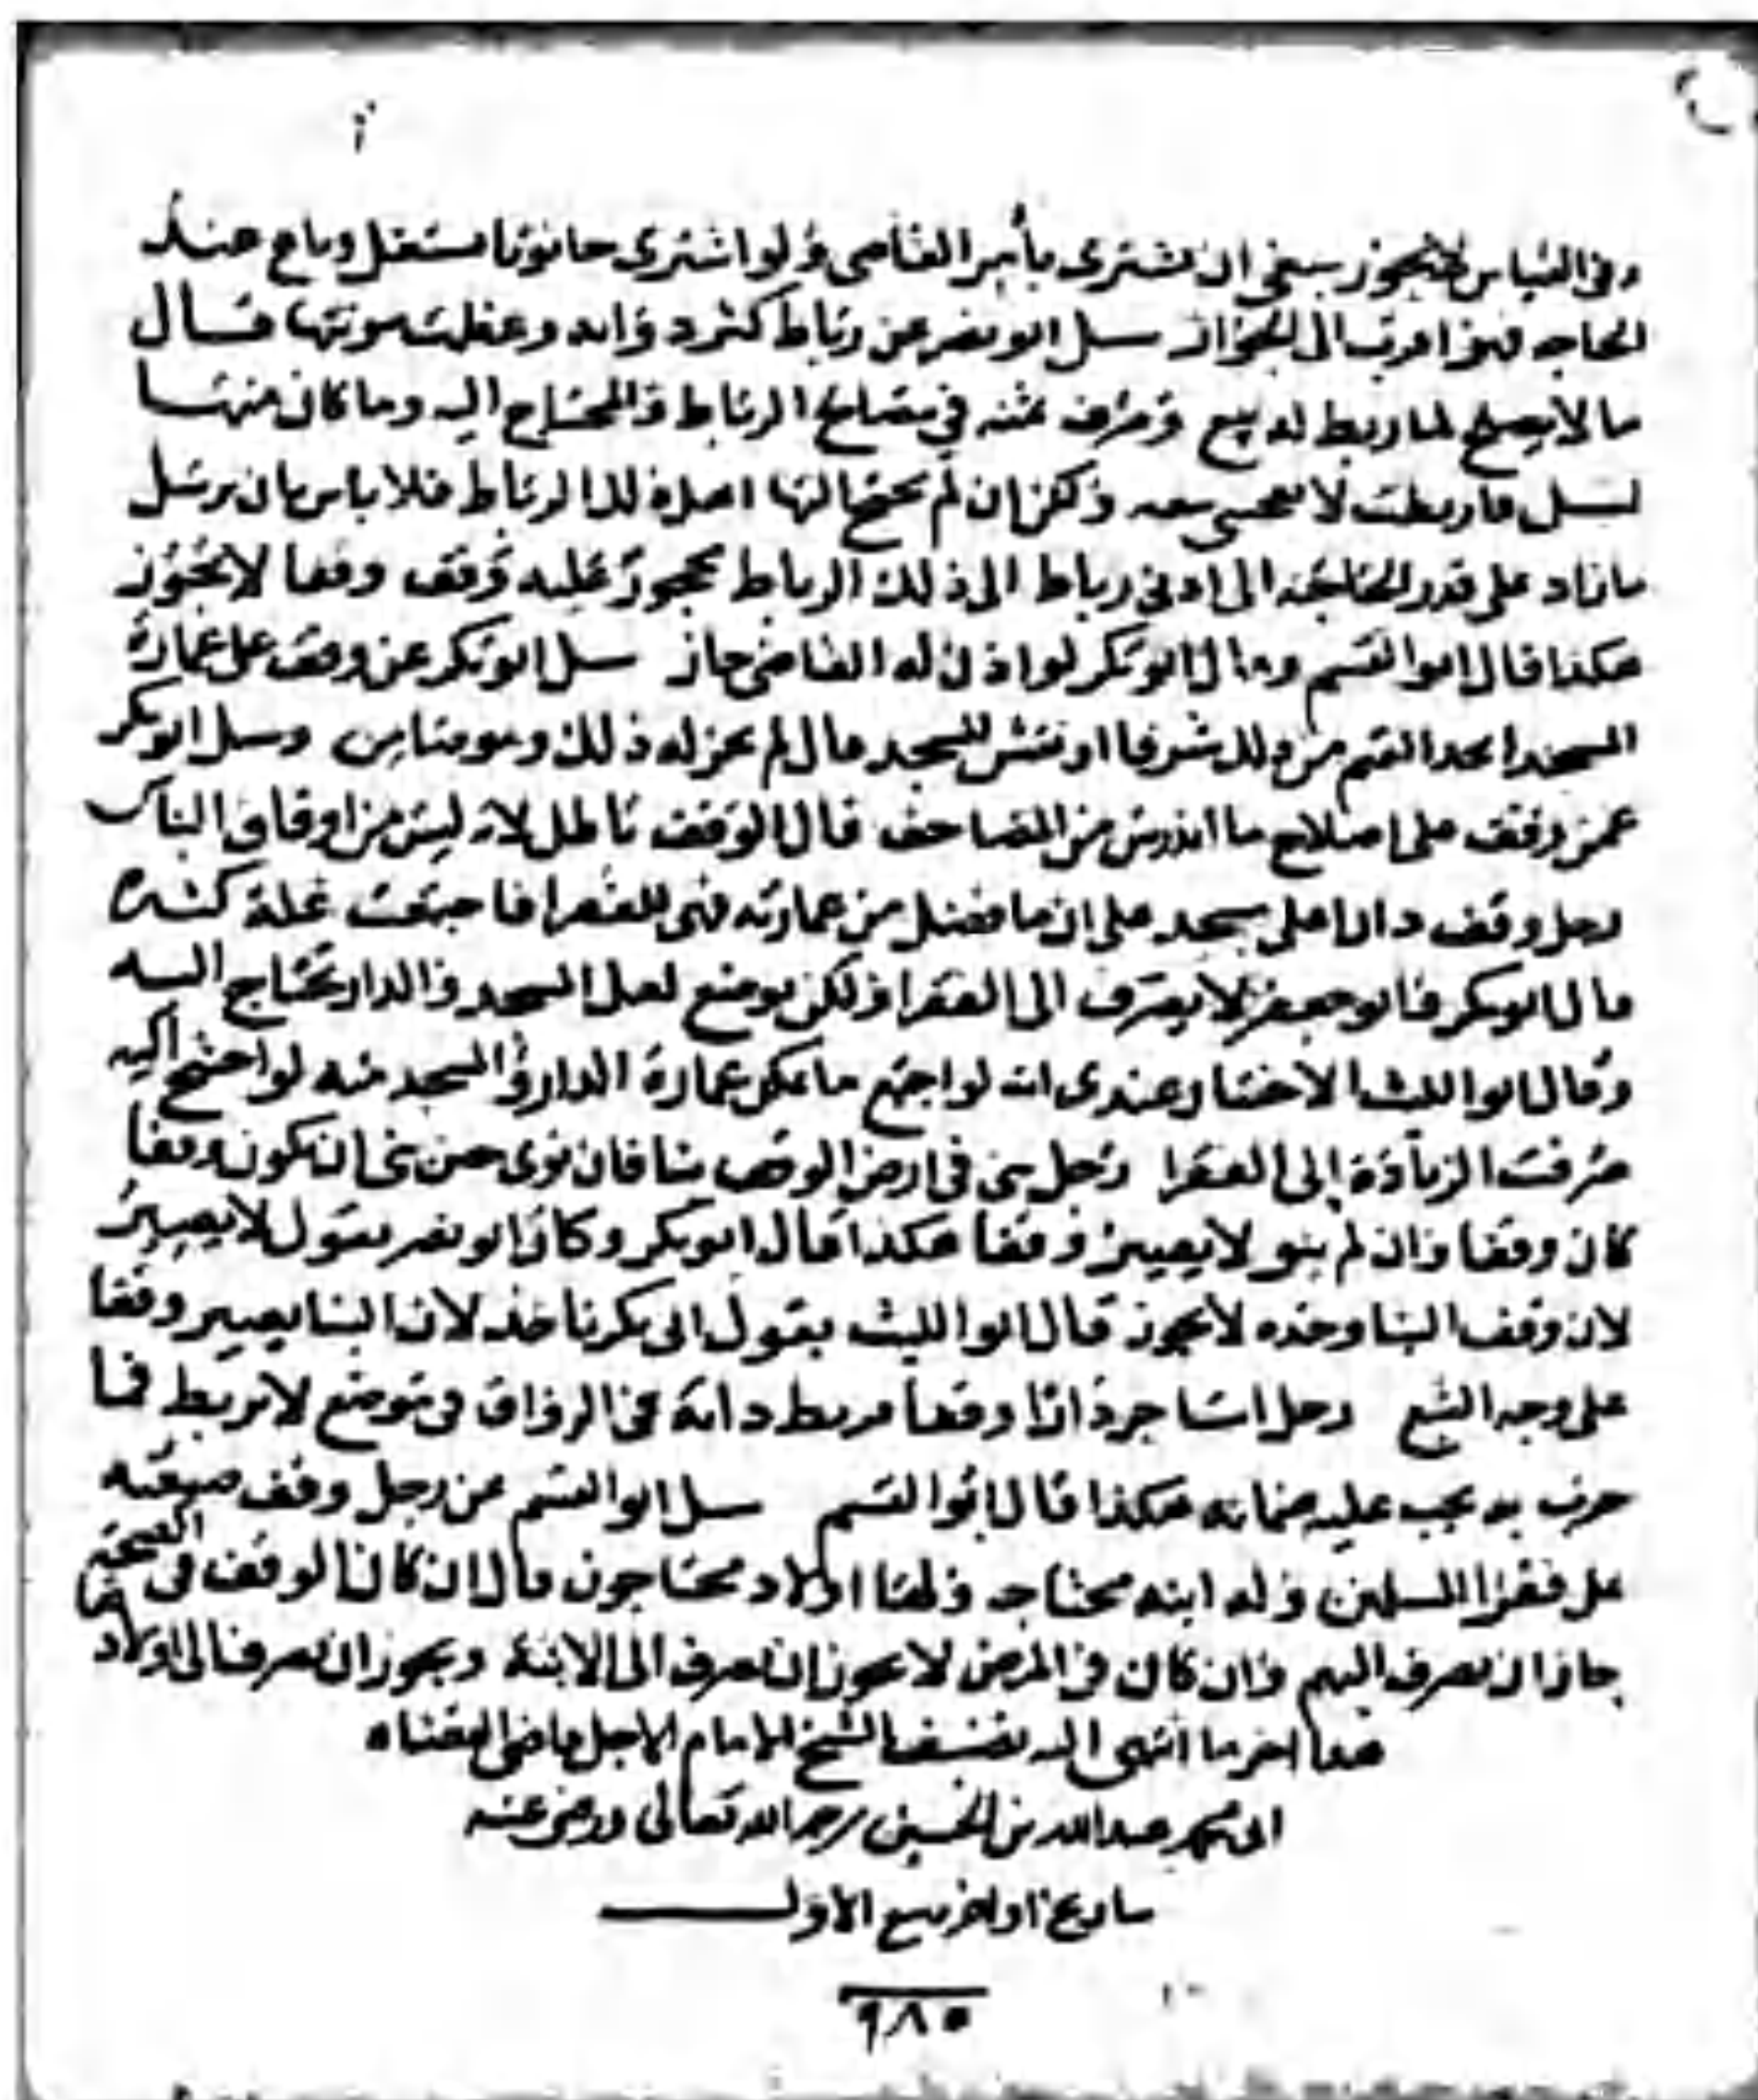 وفي القياس لا يجوز ينبغي ان يشترى بأمر القاضي ولو اشترى حانوتا مستغل وباع عند
الحاجه فهو اقرب الى الجواز سل ابو نصر عن رباط كثرد وابه وعظمت مونتها قال
ما لا يصلح لما ربط له بيع وصرف ثمنه في مصلح الرباط والمحتاج اليه وما كان منها
ربطت لا ولكن ان لم يحتج اليها لذا الرباط فلا باس بان يرسل
ما زاد على قدر الحاجة الى ادنى رباط الى ذلك الرباط محجور عليه وقف وقفا لا يجوز
هكذا قال ابو القسم وقال ابو بكر لو اذن له القاضي جاز سل ابو بكر عن وقف على عمارة
المسجد القيم من ذلك شرفا او نقش المسجد قال لم يجز له ذلك وهو وسل ابو بكر
عمن وقف على اصلاح ما اندرس من المصاحف قال الوقف باطل لانه ليس من اوقاف الناس
رجل وقف دارا على مسجد على ان ما فضل من عمارته فهى للفقرا فاجتمعت غلة كثيرة
قال ابو بكر وابو جعفر لا يصرف الى الفقرا ولكن يوضع لعل المسجد والدار تحتاج اليه
وقال ابو الليث الاختيار عندى انه لو اجتمع ما يمكن عمارة الدار والمسجد منه لو احتيج اليه
صرفت الزيادة الى الفقرا رجل بنى في ارض الوقف بنا فان نوى حين بنى ان تكون وقفا
كان وقفا وان لم ينو لا يصير وقفا هكذا قال ابو بكر وكان ابو نصر يقول لا يصير
لان وقف البنا وحده لا يجوز قال ابو الليث بقول ابى بكر ناخذ لان البنا يصير وقفا
على وجه التبع رجل استاجر دارا وقفا فربط دابة في الرواق في موضع لا تربط فما
خرب به يجب عليه ضمانه هكذا قال ابو القسم سل ابو القسم عن رجل وقف ضيعته
على فقرا المسلمين وله ابنه محتاجه ولها اولاد محتاجون قال ان كان الوقف في الصحة
جاز ان يصرف اليهم وان كان في المرض لا يجوز ان تصرف الى الابنة ويجوز ان تصرف الى اولادها
هذا اخر ما انتهى اليه تصنيف الشيخ الامام الاجل قاضي القضاه
ابى محمد عبدالله بن الحسين رحمه الله تعالى ورضى عنه
بتاريخ اواخر ربيع الاول
٩٨٥